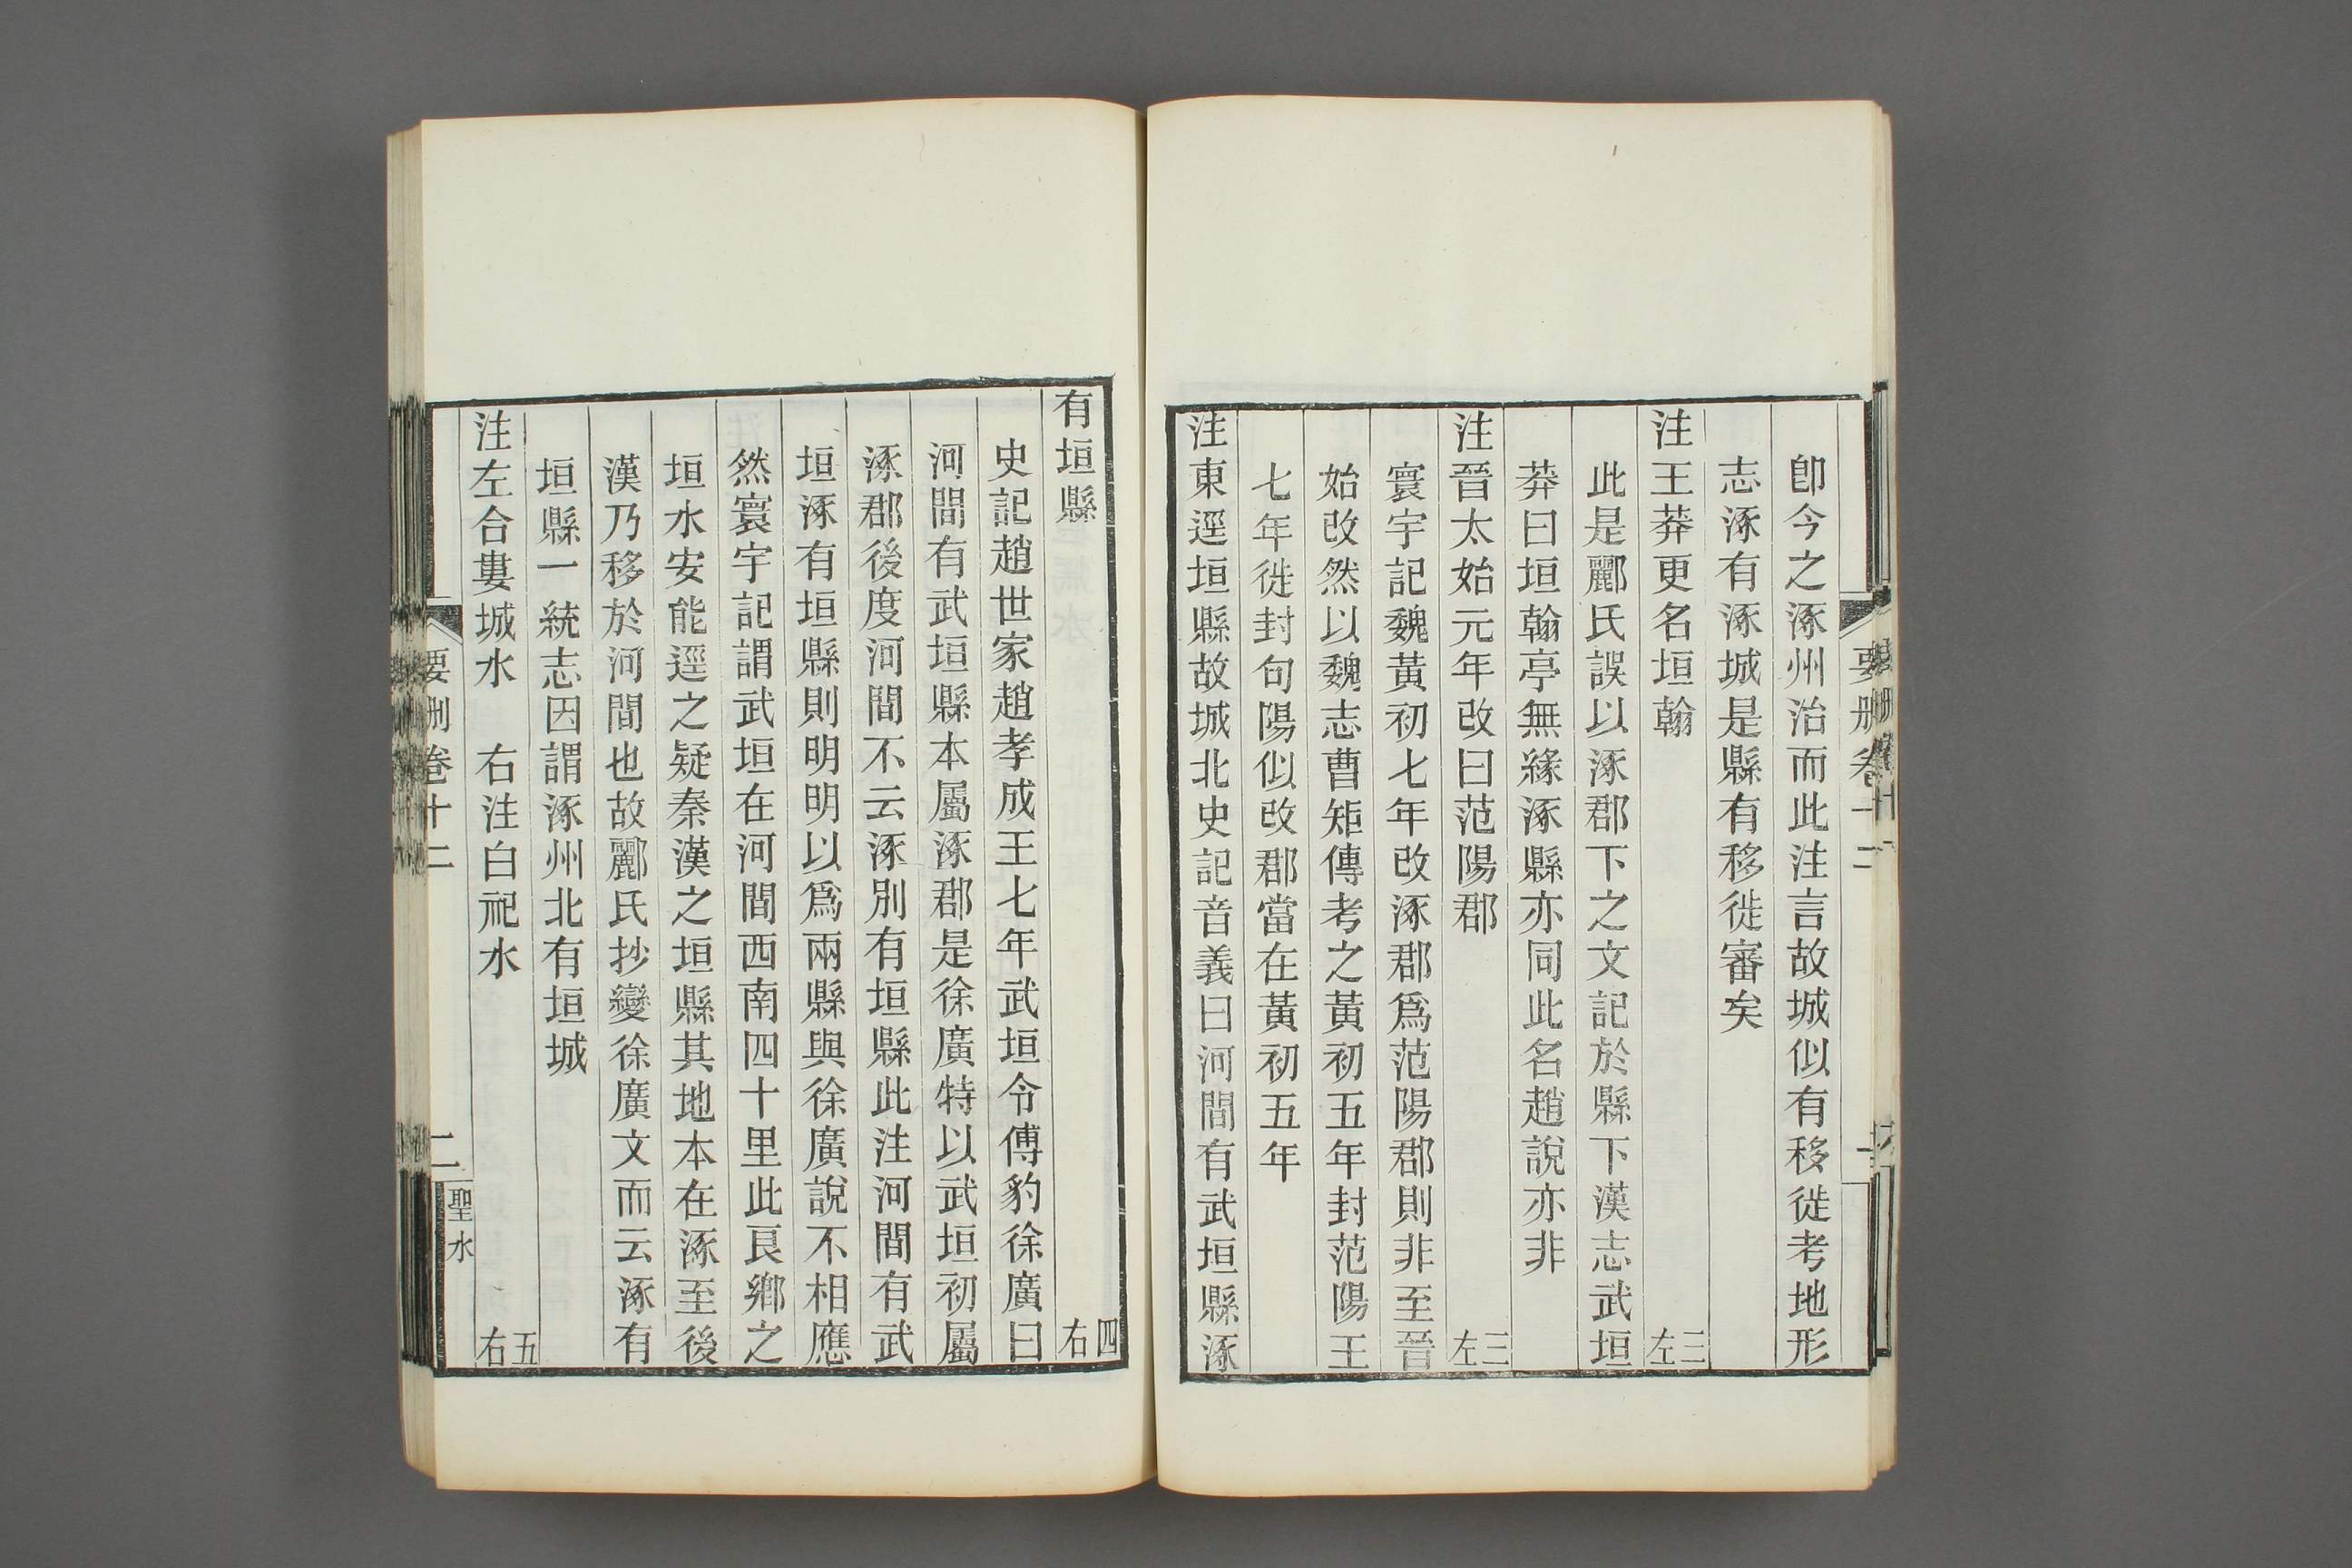 卽今之涿州治而此注言故城似有移徙考地形
志涿有涿城是縣有移徙審矣
注王莽更名垣翰 三左
此是酈氏誤以涿郡下之文記於縣下漢志武垣
莽曰垣翰亭無緣涿縣亦同此名趙說亦非
注晉太始元年改曰范陽郡 三左
寰宇記魏黃初七年改涿郡爲范陽郡則非至晉
始改然以魏志曹矩傳考之黃初五年封范陽王
七年徙封句陽似改郡當在黃初五年
注東逕垣縣故城北史記音義曰河間有武垣縣涿
有垣縣 四右
史記趙世家趙孝成王七年武垣令傅豹徐廣曰
河間有武垣縣本屬涿郡是徐廣特以武垣初屬
涿郡後度河間不云涿別有垣縣此注河間有武
垣涿有垣縣則明明以爲兩縣與徐廣說不相應
然寰宇記謂武垣在河間西南四十里此良鄉之
垣水安能逕之疑秦漢之垣縣其地本在涿至後
漢乃移於河間也故酈氏抄變徐廣文而云涿有
垣縣一統志因謂涿州北有垣城
注左合婁城水 右注白祀水 五右
要刪卷十二 二 聖水